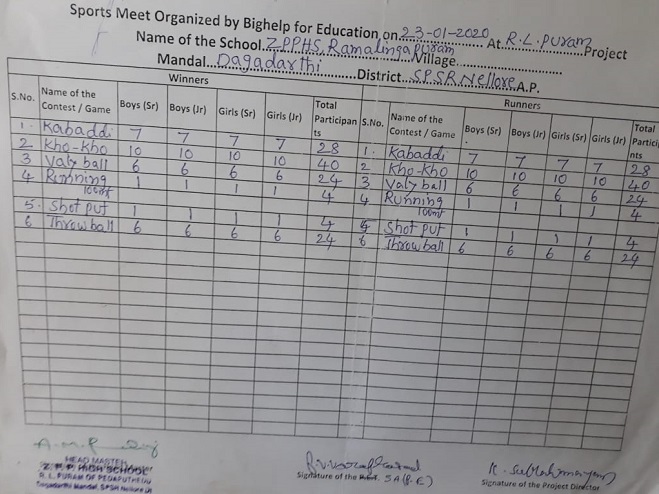 Sports Meet Organized by Bighelp for Education on 23-01-2020 At R.L.Puram Project
Name of the School ZPPHS, Ramalingapuram Village
Mandal Dagadarthi District SPSR Nellore A.P.
Winners Runners
S.No. Name of the Contest / Game Boys (Sr) Boys (Jr) Girls (Sr) Girls (Jr) Total Participan ts S.No. Name of the Contest / Game Boys (Sr) Boys (Jr) Girls (Sr) Girls (Jr) Total Partici nts
1. Kabaddi 7 7 7 7 28 1. Kabaddi 7 7 7 7 28
2 Kho-Kho 10 10 10 10 40 2 Kho-Kho 10 10 10 10 40
3 Valy ball 6 6 6 6 24 3 Valy ball 6 6 6 6 24
4 Running 100mt 1 1 1 1 4 4 Running 100mt 1 1 1 1 4
5. Shot put 1 1 1 1 4 5 Shot put 1 1 1 1 4
6 Throw ball 6 6 6 6 24 6 Throw ball 6 6 6 6 24
HEAD MASTER
Z.P.P. HIGH SCHOOL
R. L. PURAM OF PEDAPUTHEDU
Dagadarthi Mandal, SPSR Nellore Dt
Signature of the S.A (P.E)
Signature of the Project Director